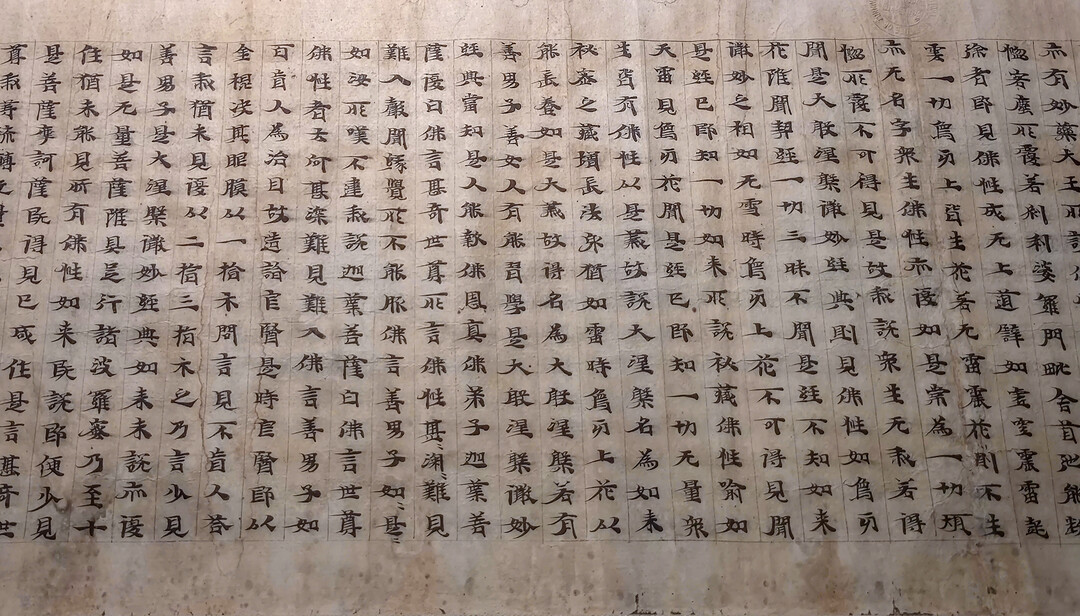 亦有妙藥大王所
惱客塵所覆若刹利婆羅門毗舍首陁能斷
除者即見佛性成无上道譬如虛空震雷起
雲一切象牙上皆生花若无雷震花則不生
亦无名字衆生佛性亦復如是常為一切煩
惱所覆不可得見是故我說衆生无我若得
聞是大般涅槃微妙經典則見佛性如象牙
花雖聞契經一切三昧不聞是經不知如來
微妙之相如无雪時象牙上花不可得見聞
是經已即知一切如來所說秘藏佛性喻如
天雷見象牙花聞是經已即知一切无量衆
生皆有佛性以是義故說大涅槃名為如來
秘密之藏增長法身猶如雷時象牙上花以
能長養如是大義故得名為大般涅槃若有
善男子善女人有能習學是大般涅槃微妙
經典當知是人能報佛恩真佛弟子迦葉菩
薩復白佛言甚奇世尊所言佛性甚深難見
難入聲聞緣覺所不能服佛言善男子如是
如汝所嘆不違我說迦葉菩薩白佛言世尊
佛性者云何甚深難見難入佛言善男子如
百盲人為治目故造詣良醫是時良醫即以
金錍決其眼膜以一指示問言見不盲人荅
言我猶未見復以二指三指示之乃言少見
善男子是大涅槃微妙經典如來未說亦復
如是无量菩薩雖具足行諸波羅蜜乃至十
住猶未能見所有佛性如來既說即便少見
是菩薩摩訶薩既得見已咸作是言甚奇世
尊我等流轉